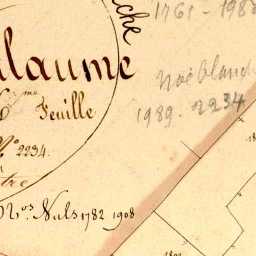 che
1761 - 1988
laume
me Feuille
Noë blanc
1989. 2234
N° 2234.
tre
Nos. Nals 1782 1908